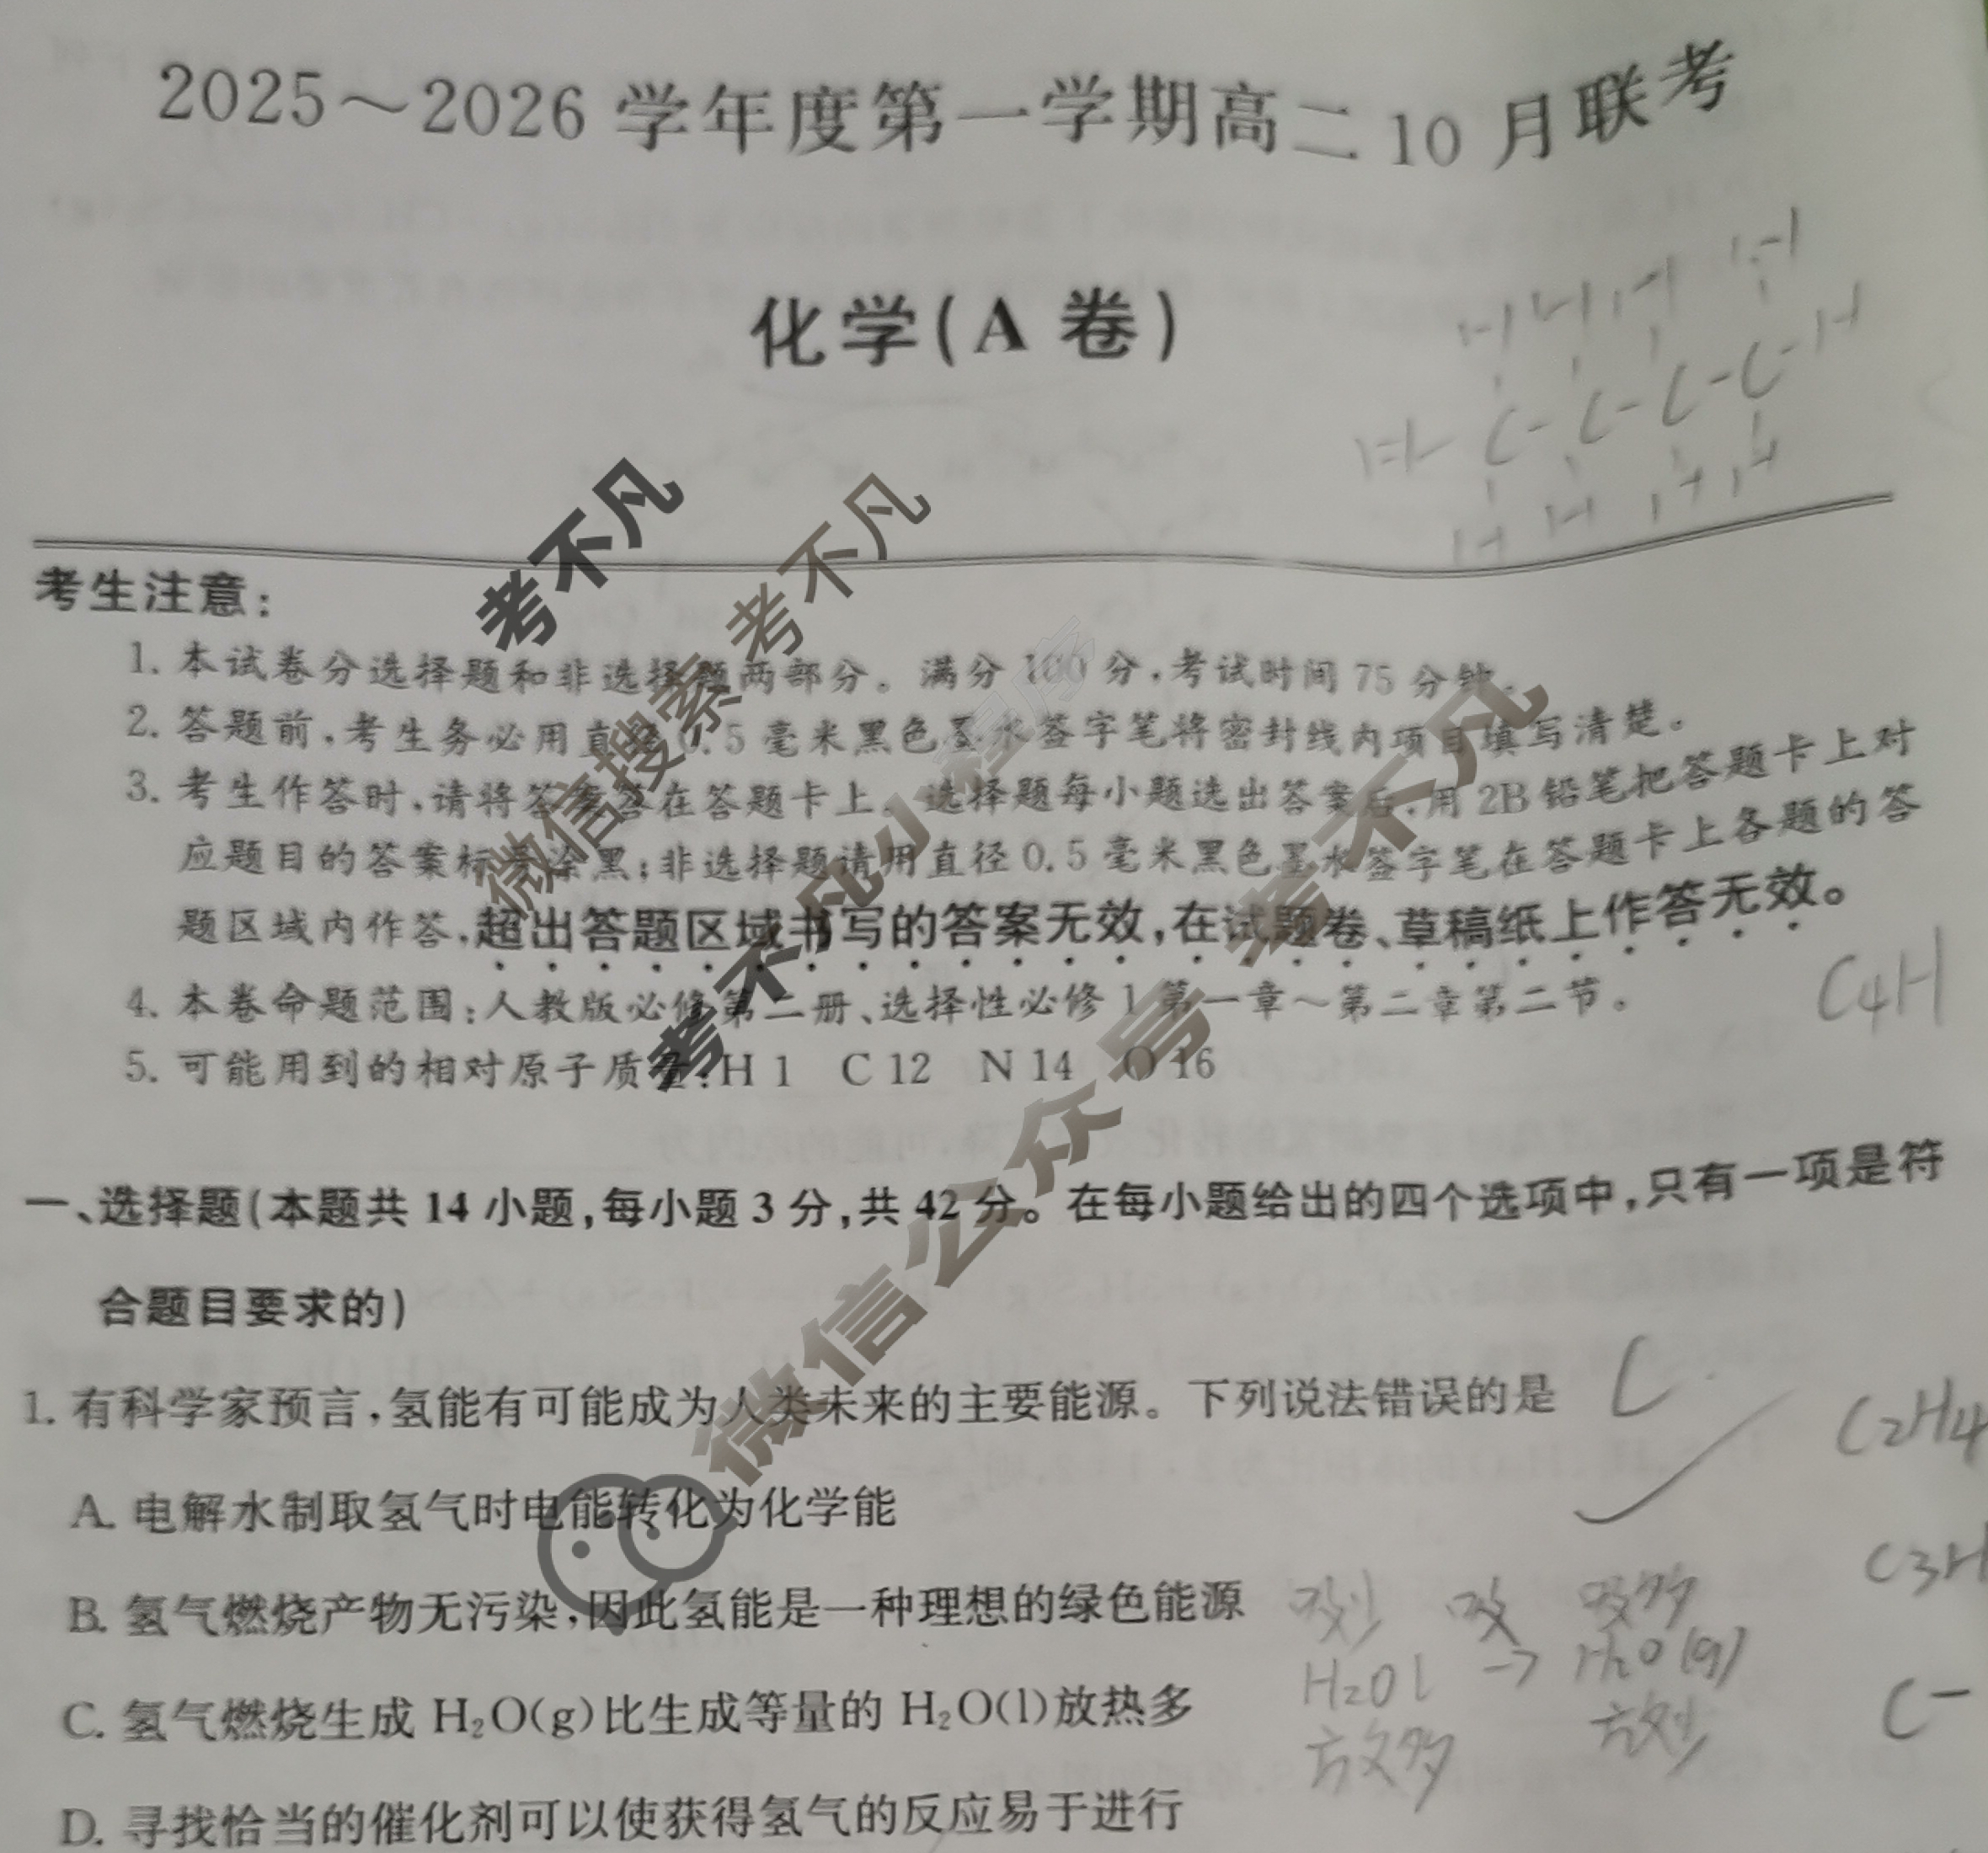 2025～2026 学年度第一学期高二 10 月联考
化学(A 卷)
考生注意:
1. 本试卷分选择题和非选择题两部分。满分 100 分,考试时间 75 分钟。
2. 答题前,考生务必用直径 0.5 毫米黑色墨水签字笔将密封线内项目填写清楚。
3. 考生作答时,请将答案答在答题卡上。选择题每小题选出答案后,用 2B 铅笔把答题卡上对
应题目的答案标号涂黑;非选择题请用直径 0.5 毫米黑色墨水签字笔在答题卡上各题的答
题区域内作答,超出答题区域书写的答案无效,在试题卷、草稿纸上作答无效。
C4H
4. 本卷命题范围:人教版必修第二册、选择性必修 1 第一章～第二章第二节。
5. 可能用到的相对原子质量:H 1 C 12 N 14 O 16
一、选择题(本题共 14 小题,每小题 3 分,共 42 分。在每小题给出的四个选项中,只有一项是符
合题目要求的)
1. 有科学家预言,氢能有可能成为人类未来的主要能源。下列说法错误的是 C
C2H4
A. 电解水制取氢气时电能转化为化学能
C3H
B. 氢气燃烧产物无污染,因此氢能是一种理想的绿色能源
吸少 吸 吸多
H2O l → H2O (g)
放多 放少
C-
C. 氢气燃烧生成 H₂O(g)比生成等量的 H₂O(l)放热多
D. 寻找恰当的催化剂可以使获得氢气的反应易于进行
考不凡
微信搜索 考不凡
考不凡必程库
微信公众号 考不凡